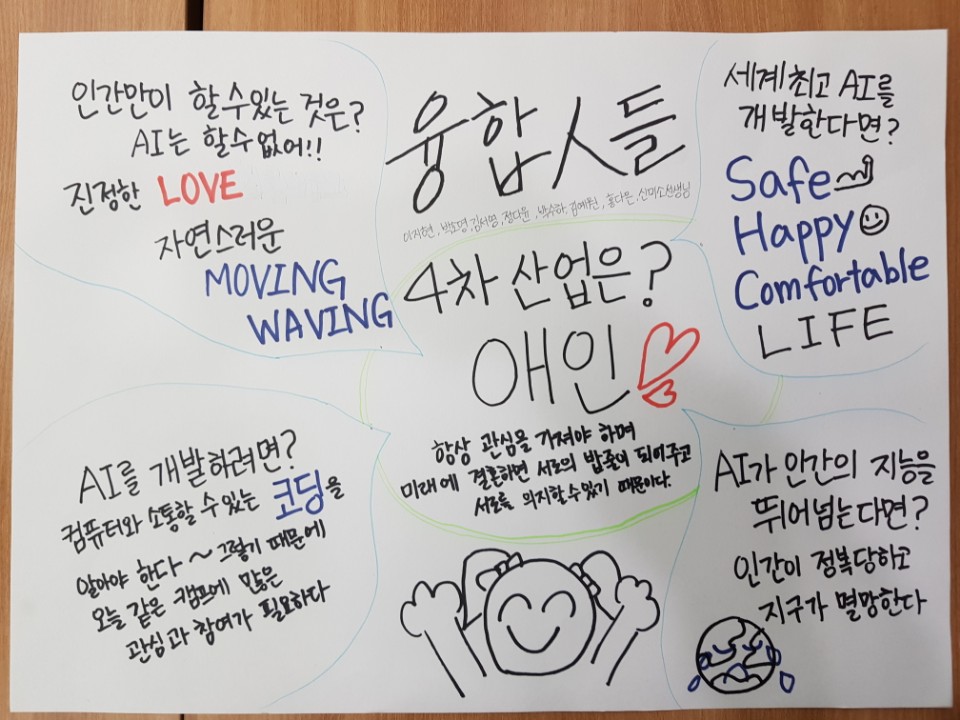 인간만이 할 수 있는 것은?
AI는 할 수 없어!!
진정한 LOVE
자연스러운
MOVING
WAVING
융합人들
이지현, 박도명, 김서영, 정다윤, 박수하, 김예원, 홍다은, 신미소선생님
4차 산업은?
애인
항상 관심을 가져야 하며
미래에 결혼하면 서로의 밥줄이 되어주고
서로를 의지할 수 있기 때문이다.
세계 최고 AI를
개발한다면?
Safe
Happy
Comfortable
LIFE
AI를 개발하려면?
컴퓨터와 소통할 수 있는 코딩을
알아야 한다 ~ 그렇기 때문에
오늘 같은 캠프에 많은
관심과 참여가 필요하다
AI가 인간의 지능을
뛰어넘는다면?
인간이 정복당하고
지구가 멸망한다